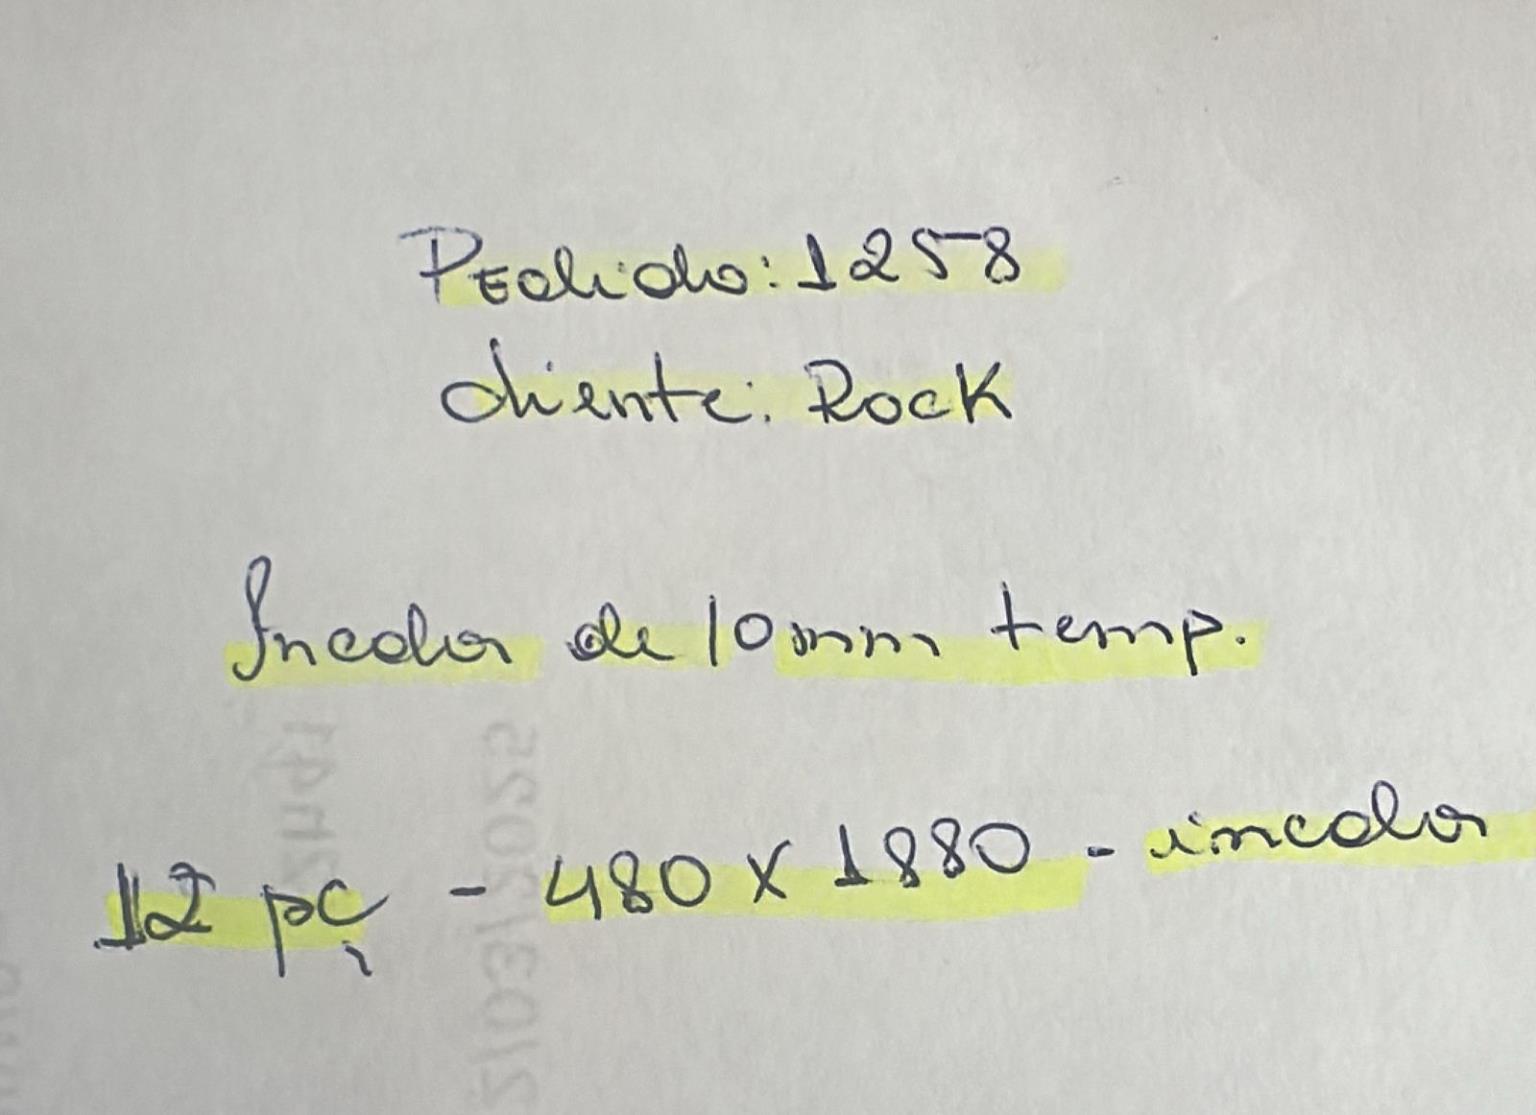 Pedido: 1258
Cliente: Rock
Incolor de 10mm temp.
12 pç - 480 x 1880 - incolor